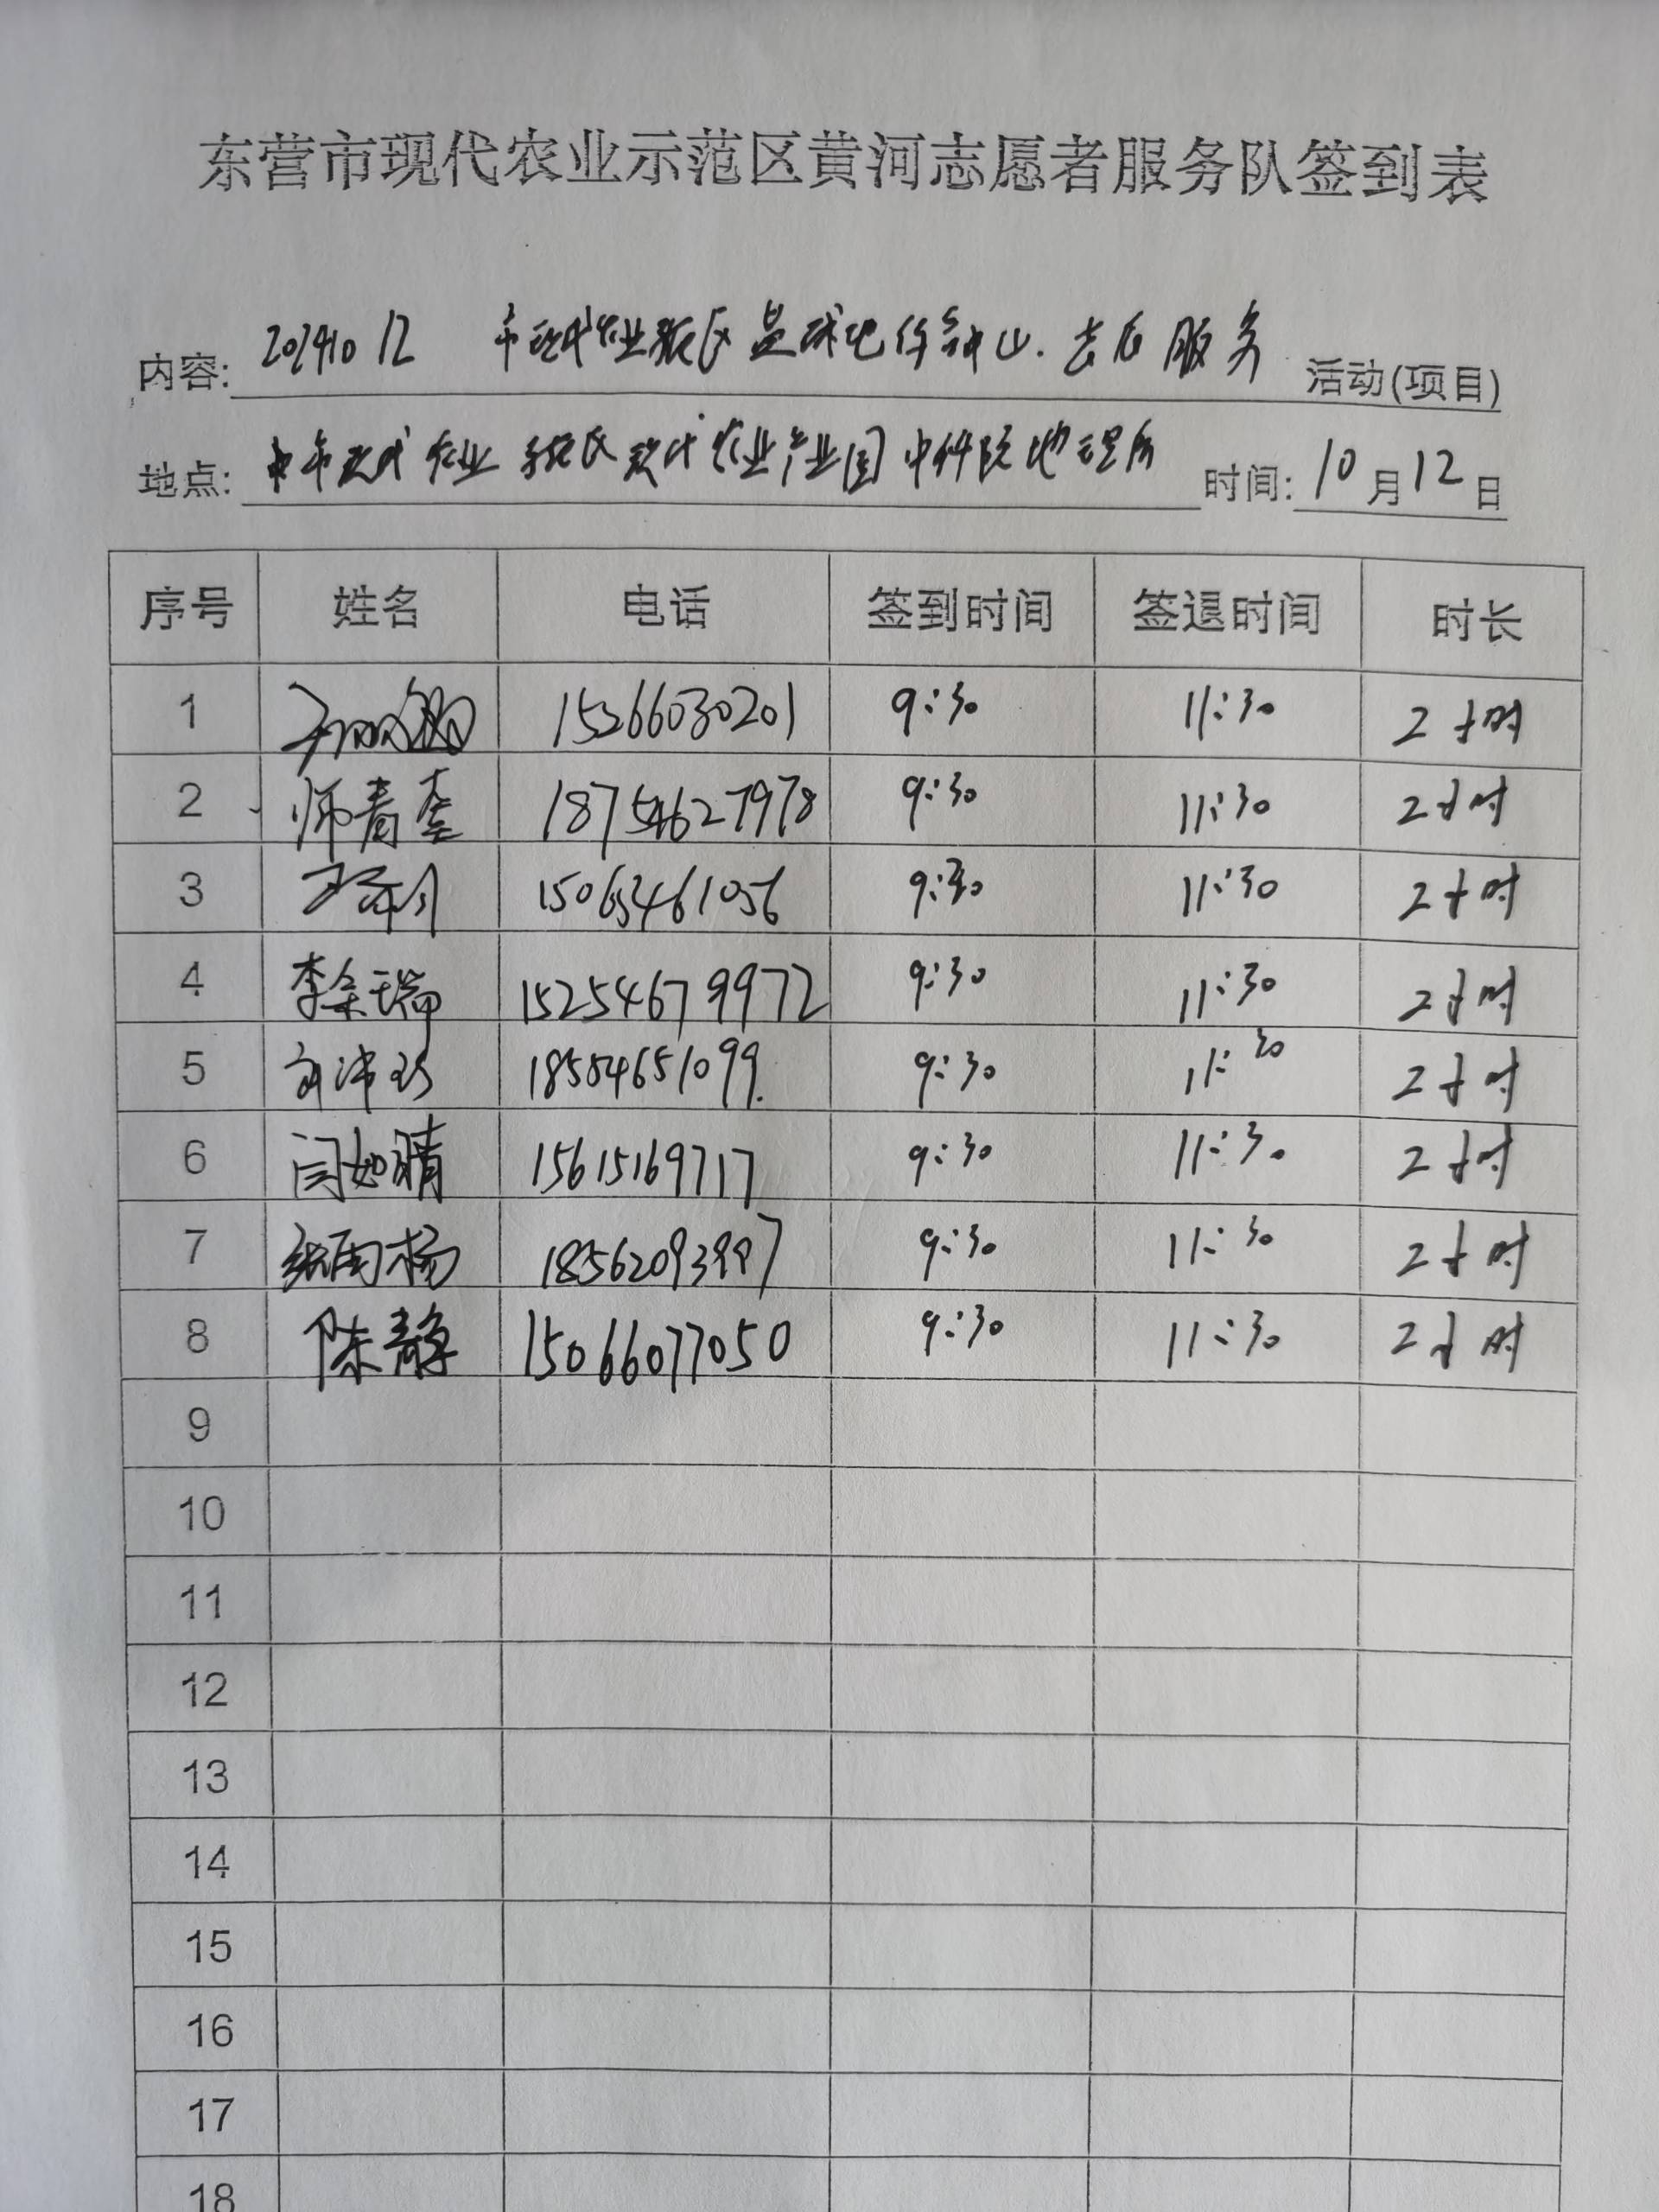 东营市现代农业示范区黄河志愿者服务队签到表
内容: 20241012 市现代农业示范区 服务 活动(项目)
地点: 市现代农业示范区现代农业产业园中科院地理所 时间: 10月12日
序号 姓名 电话 签到时间 签退时间 时长
1 15266030201 9:30 11:30 2小时
2 师青奎 18754627978 9:30 11:30 2小时
3 15063461056 9:30 11:30 2小时
4 李余瑞 15254679972 9:30 11:30 2小时
5 18554651099 9:30 11:30 2小时
6 闫如晴 15615169717 9:30 11:30 2小时
7 张雨杨 9:30 11:30 2小时
8 陈静 15066077050 9:30 11:30 2小时
9
10
11
12
13
14
15
16
17
18